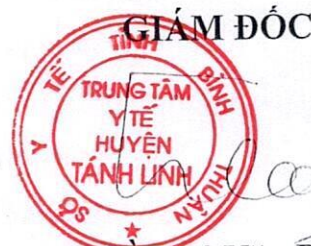 GIÁM ĐỐC
SỞ Y TẾ TỈNH BÌNH THUẬN
TRUNG TÂM
Y TẾ
HUYỆN
TÁNH LINH